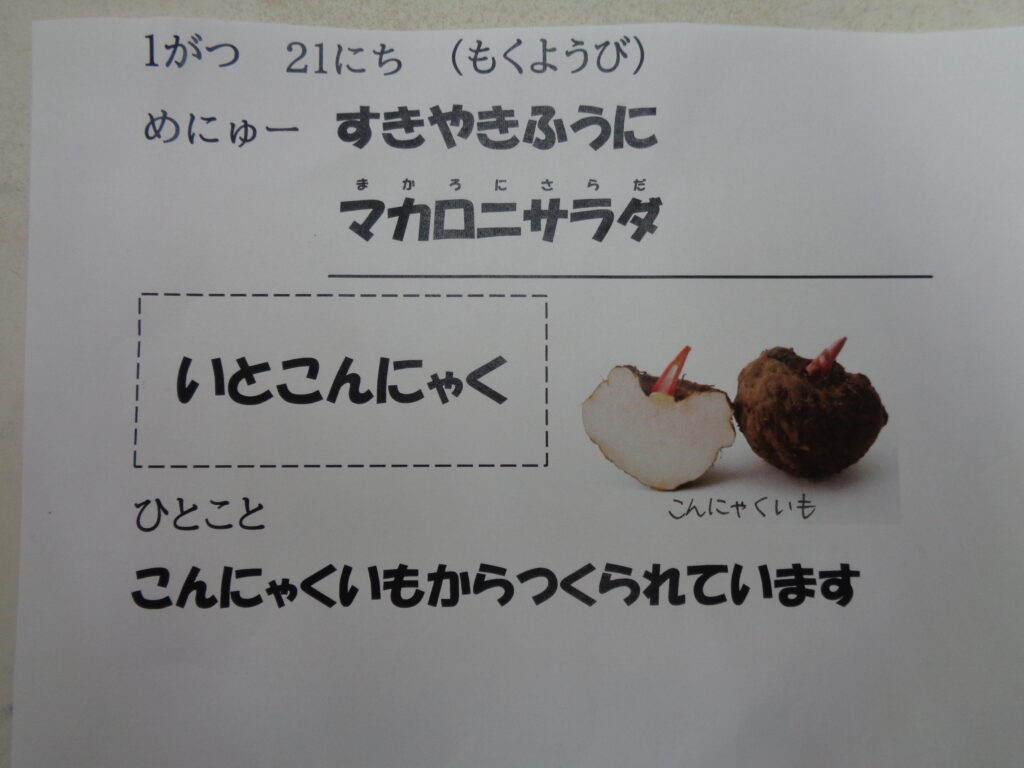 1がつ 21にち (もくようび)
めにゅー すきやきふうに
まかろにさらだ
マカロニサラダ
いとこんにゃく
こんにゃくいも
ひとこと
こんにゃくいもからつくられています